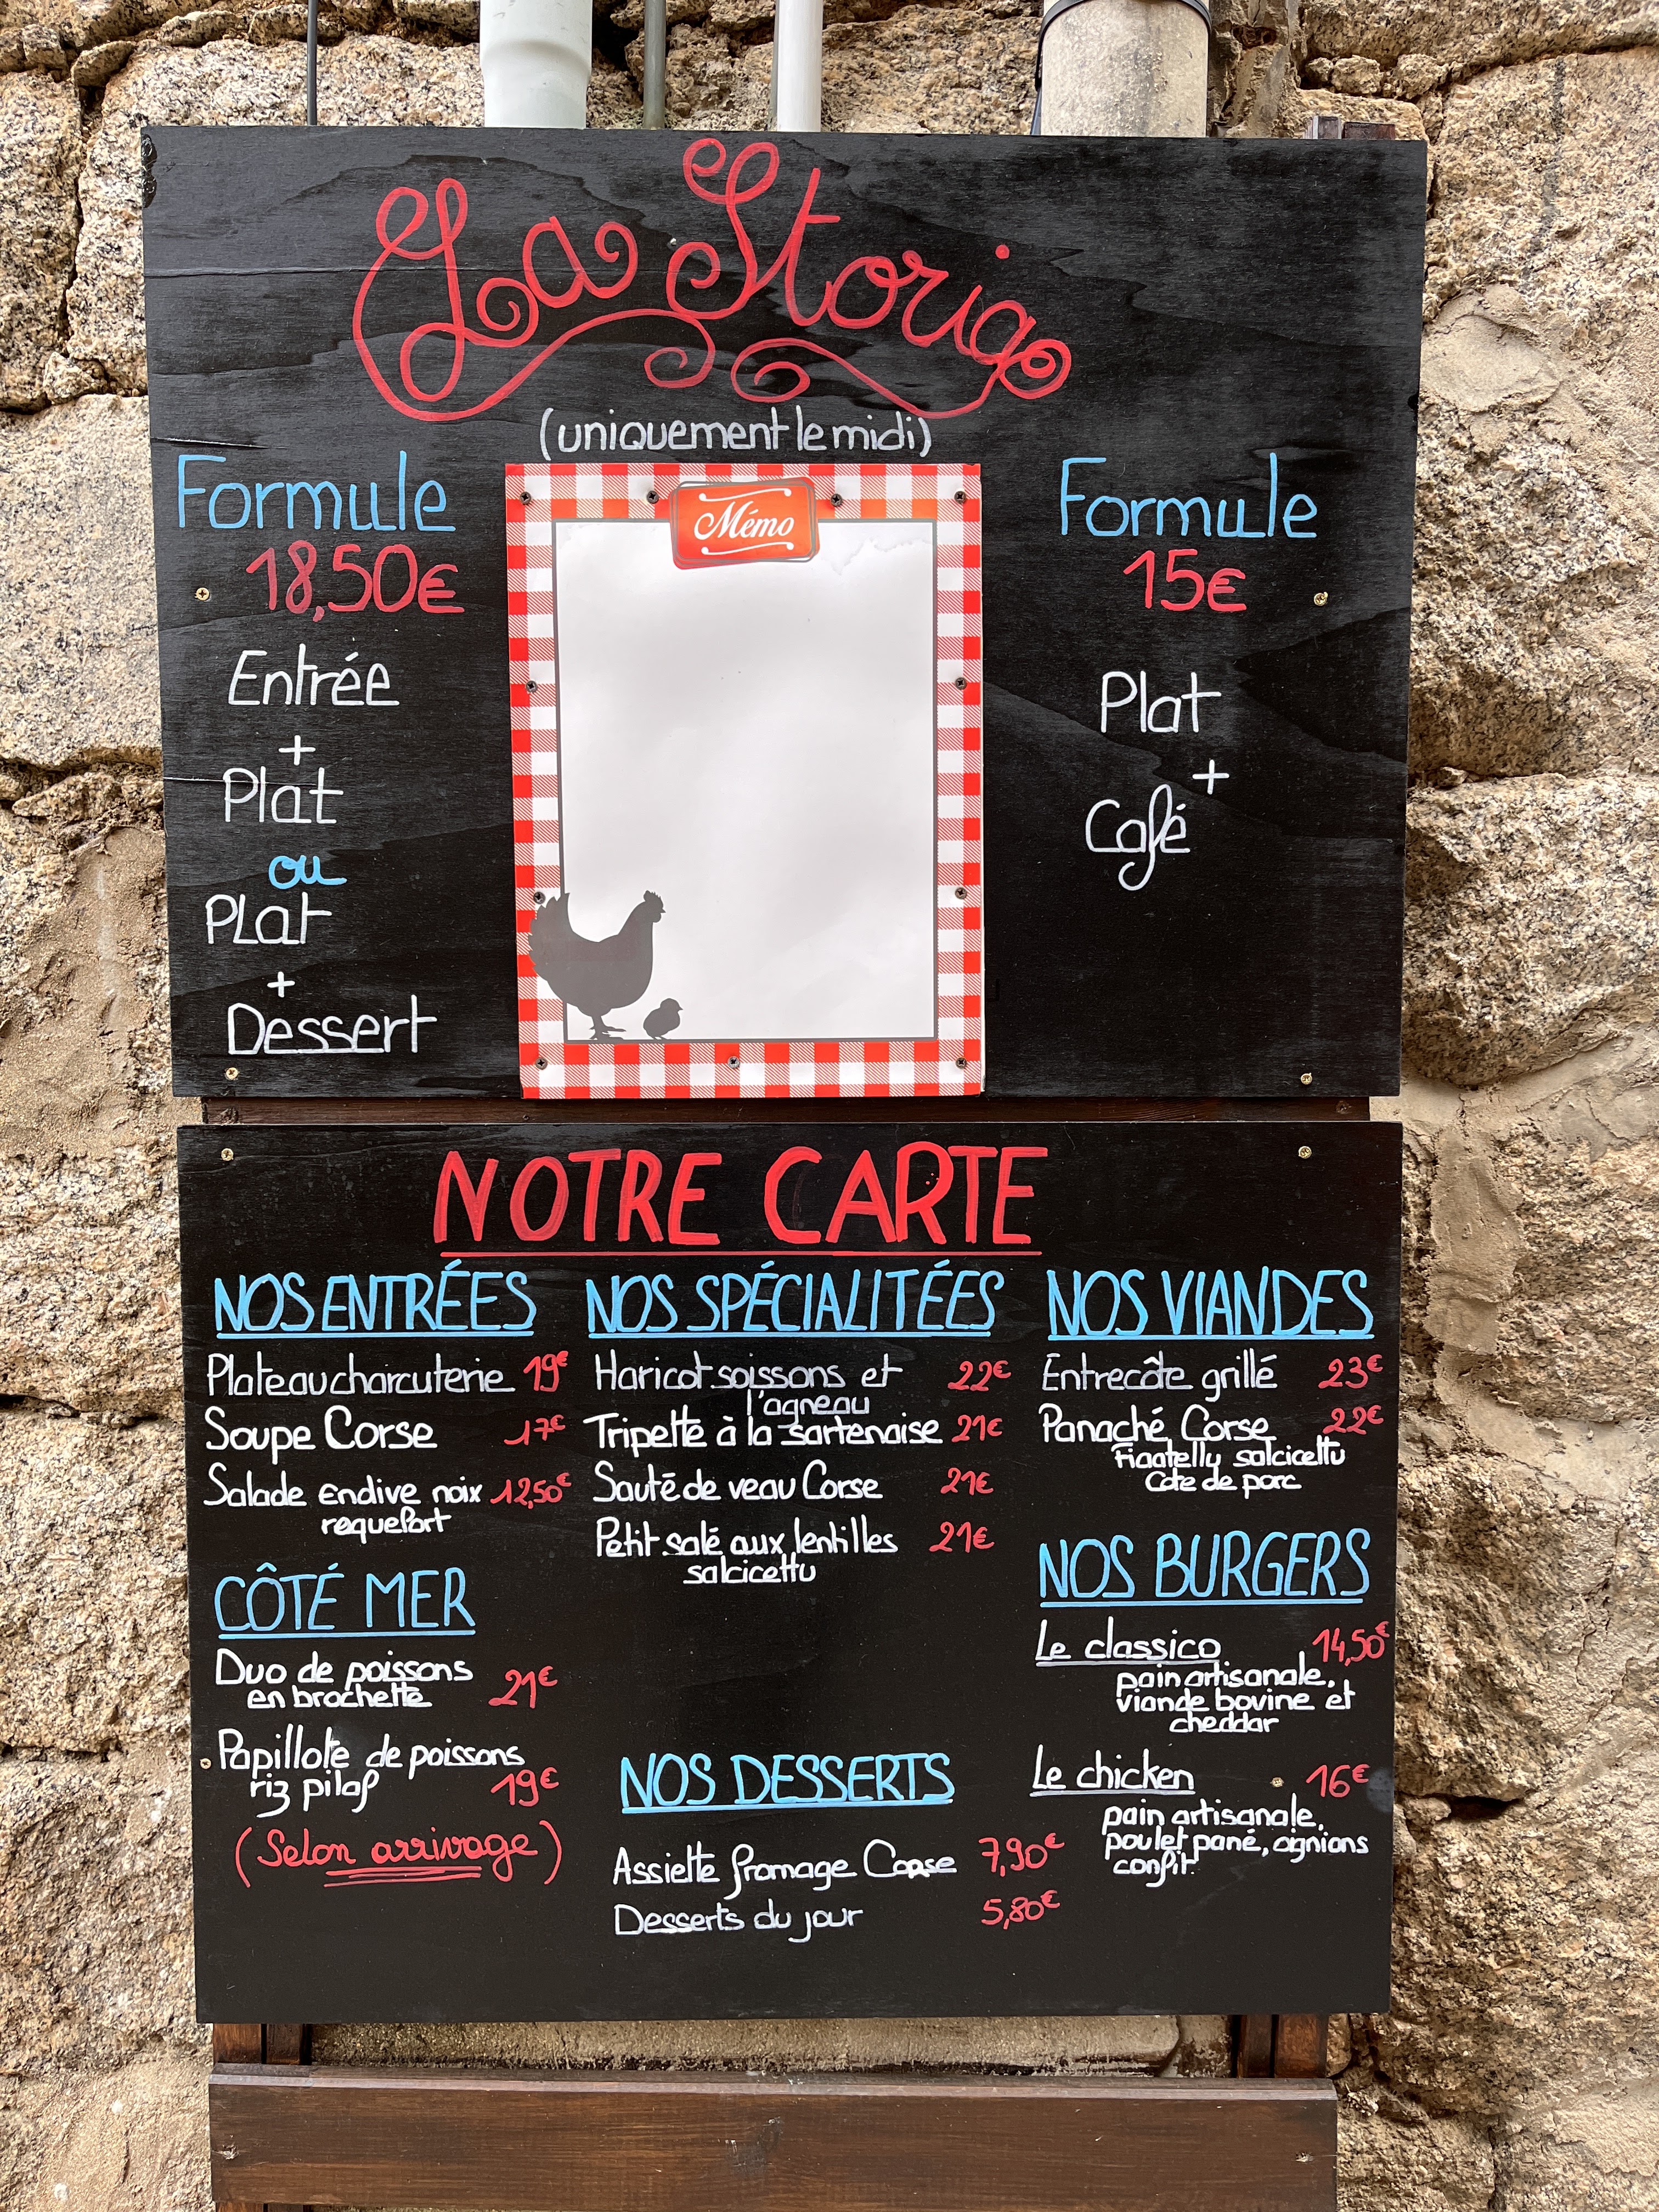 La Storia
(uniquement le midi)
Formule
18,50€
Entrée
+
Plat
ou
PLat
+
Dessert
Mémo
Formule
15€
Plat
+
Café
NOTRE CARTE
NOS ENTRÉES
Plateau charcuterie 19€
Soupe Corse 17€
Salade endive noix 12,50€
roquefort
CÔTÉ MER
Duo de poissons
en brochette 21€
Papillote de poissons
riz pilaf 19€
(Selon arrivage)
NOS SPÉCIALITÉES
Haricot soissons et 22€
l'agneau
Tripette à la sartenaise 21€
Sauté de veau Corse 21€
Petit salé aux lentilles 21€
salcicettu
NOS DESSERTS
Assiette fromage Corse 7,90€
Desserts du jour 5,80€
NOS VIANDES
Entrecôte grillé 23€
Panaché Corse 22€
Figatelly salcicettu
Côte de porc
NOS BURGERS
Le classico 14,50€
pain artisanale,
viande bovine et
cheddar
Le chicken 16€
pain artisanale,
poulet pané, oignions
confit.